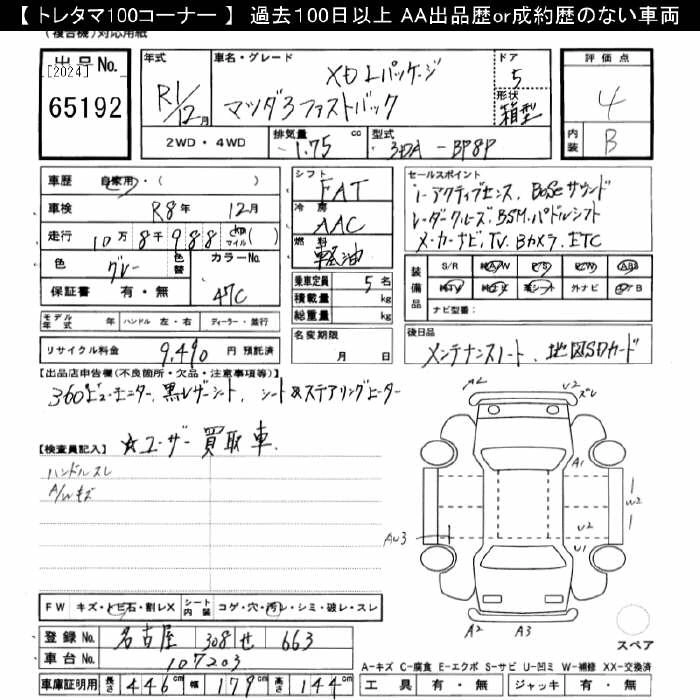 【 トレタマ100コーナー 】 過去100日以上 AA出品歴or成約歴のない車両
(複合機)対応用紙
出品No.
[2024]
65192
年式
R1/12月
車名・グレード
XD Lパッケージ
マツダ3 ファストバック
ドア
5
形状
箱型
評価点
4
内装
B
2WD・4WD
排気量
1.75 cc
型式
3DA-BP8P
車歴 自家用・( )
車検 R8年 12月
走行 10万8千988 km マイル( )
色 グレー
色替
カラーNo.
47C
保証書 有・無
シフト
FAT
冷房
AAC
燃料
軽油
乗車定員 5名
積載量 kg
総重量 kg
セールスポイント
i-アクティブセンス、BOSEサウンド
レーダークルーズ、BSM、パドルシフト
メーカーナビ、TV、Bカメラ、ETC
装備品
S/R
A/W
P/S
P/W
ABS
TV
革シート
外ナビ
エアB
ナビ型番:
モデル年式 年 ハンドル 左・右 ディーラー・並行
リサイクル料金 9,490 円 預託済
名変期限
月 日
後日品
メンテナンスノート、地図SDカード
【出品店申告欄(不良箇所・欠品・注意事項等)】
360°ビューモニター、黒レザーシート、シート&ステアリングヒーター
【検査員記入】 ☆ユーザー買取車
ハンドルスレ
A/Wキズ
A2
U2
ズレ
A1
W2
AU3
U2
U1
A2
A3
スペア
FW キズ・トビ石・割レX シート内装 コゲ・穴・汚レ・シミ・破レ・スレ
登録No. 名古屋 308 せ 663
車台No. 107203
車庫証明用 長さ 446cm 幅 179cm 高さ 144cm
A-キズ C-腐食 E-エクボ S-サビ U-凹ミ W-補修 XX-交換済
工具 有・無 ジャッキ 有・無